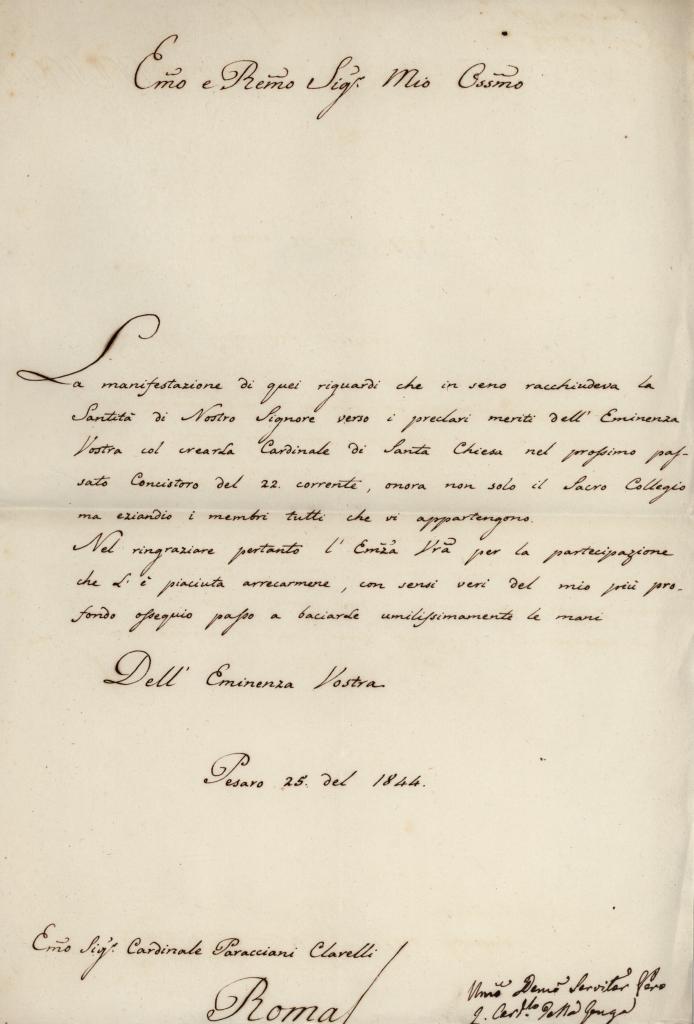 Emo e Remo Sigr. Mio Ossmo
La manifestazione di quei riguardi che in seno racchiudeva la
Santità di Nostro Signore verso i preclari meriti dell' Eminenza
Vostra col crearla Cardinale di Santa Chiesa nel prossimo pas-
sato Concistoro del 22. corrente, onora non solo il Sacro Collegio
ma eziandio i membri tutti che vi appartengono.
Nel ringraziare pertanto l' Emza Vra per la partecipazione
che L' è piaciuta arrecarmene, con sensi veri del mio più pro-
fondo ossequio passo a baciarle umilissimamente le mani
Dell' Eminenza Vostra
Pesaro 25. del 1844.
Emo Sigr. Cardinale Paracciani Clarelli
Roma
Umo Devmo Servitor Vero
Della Genga